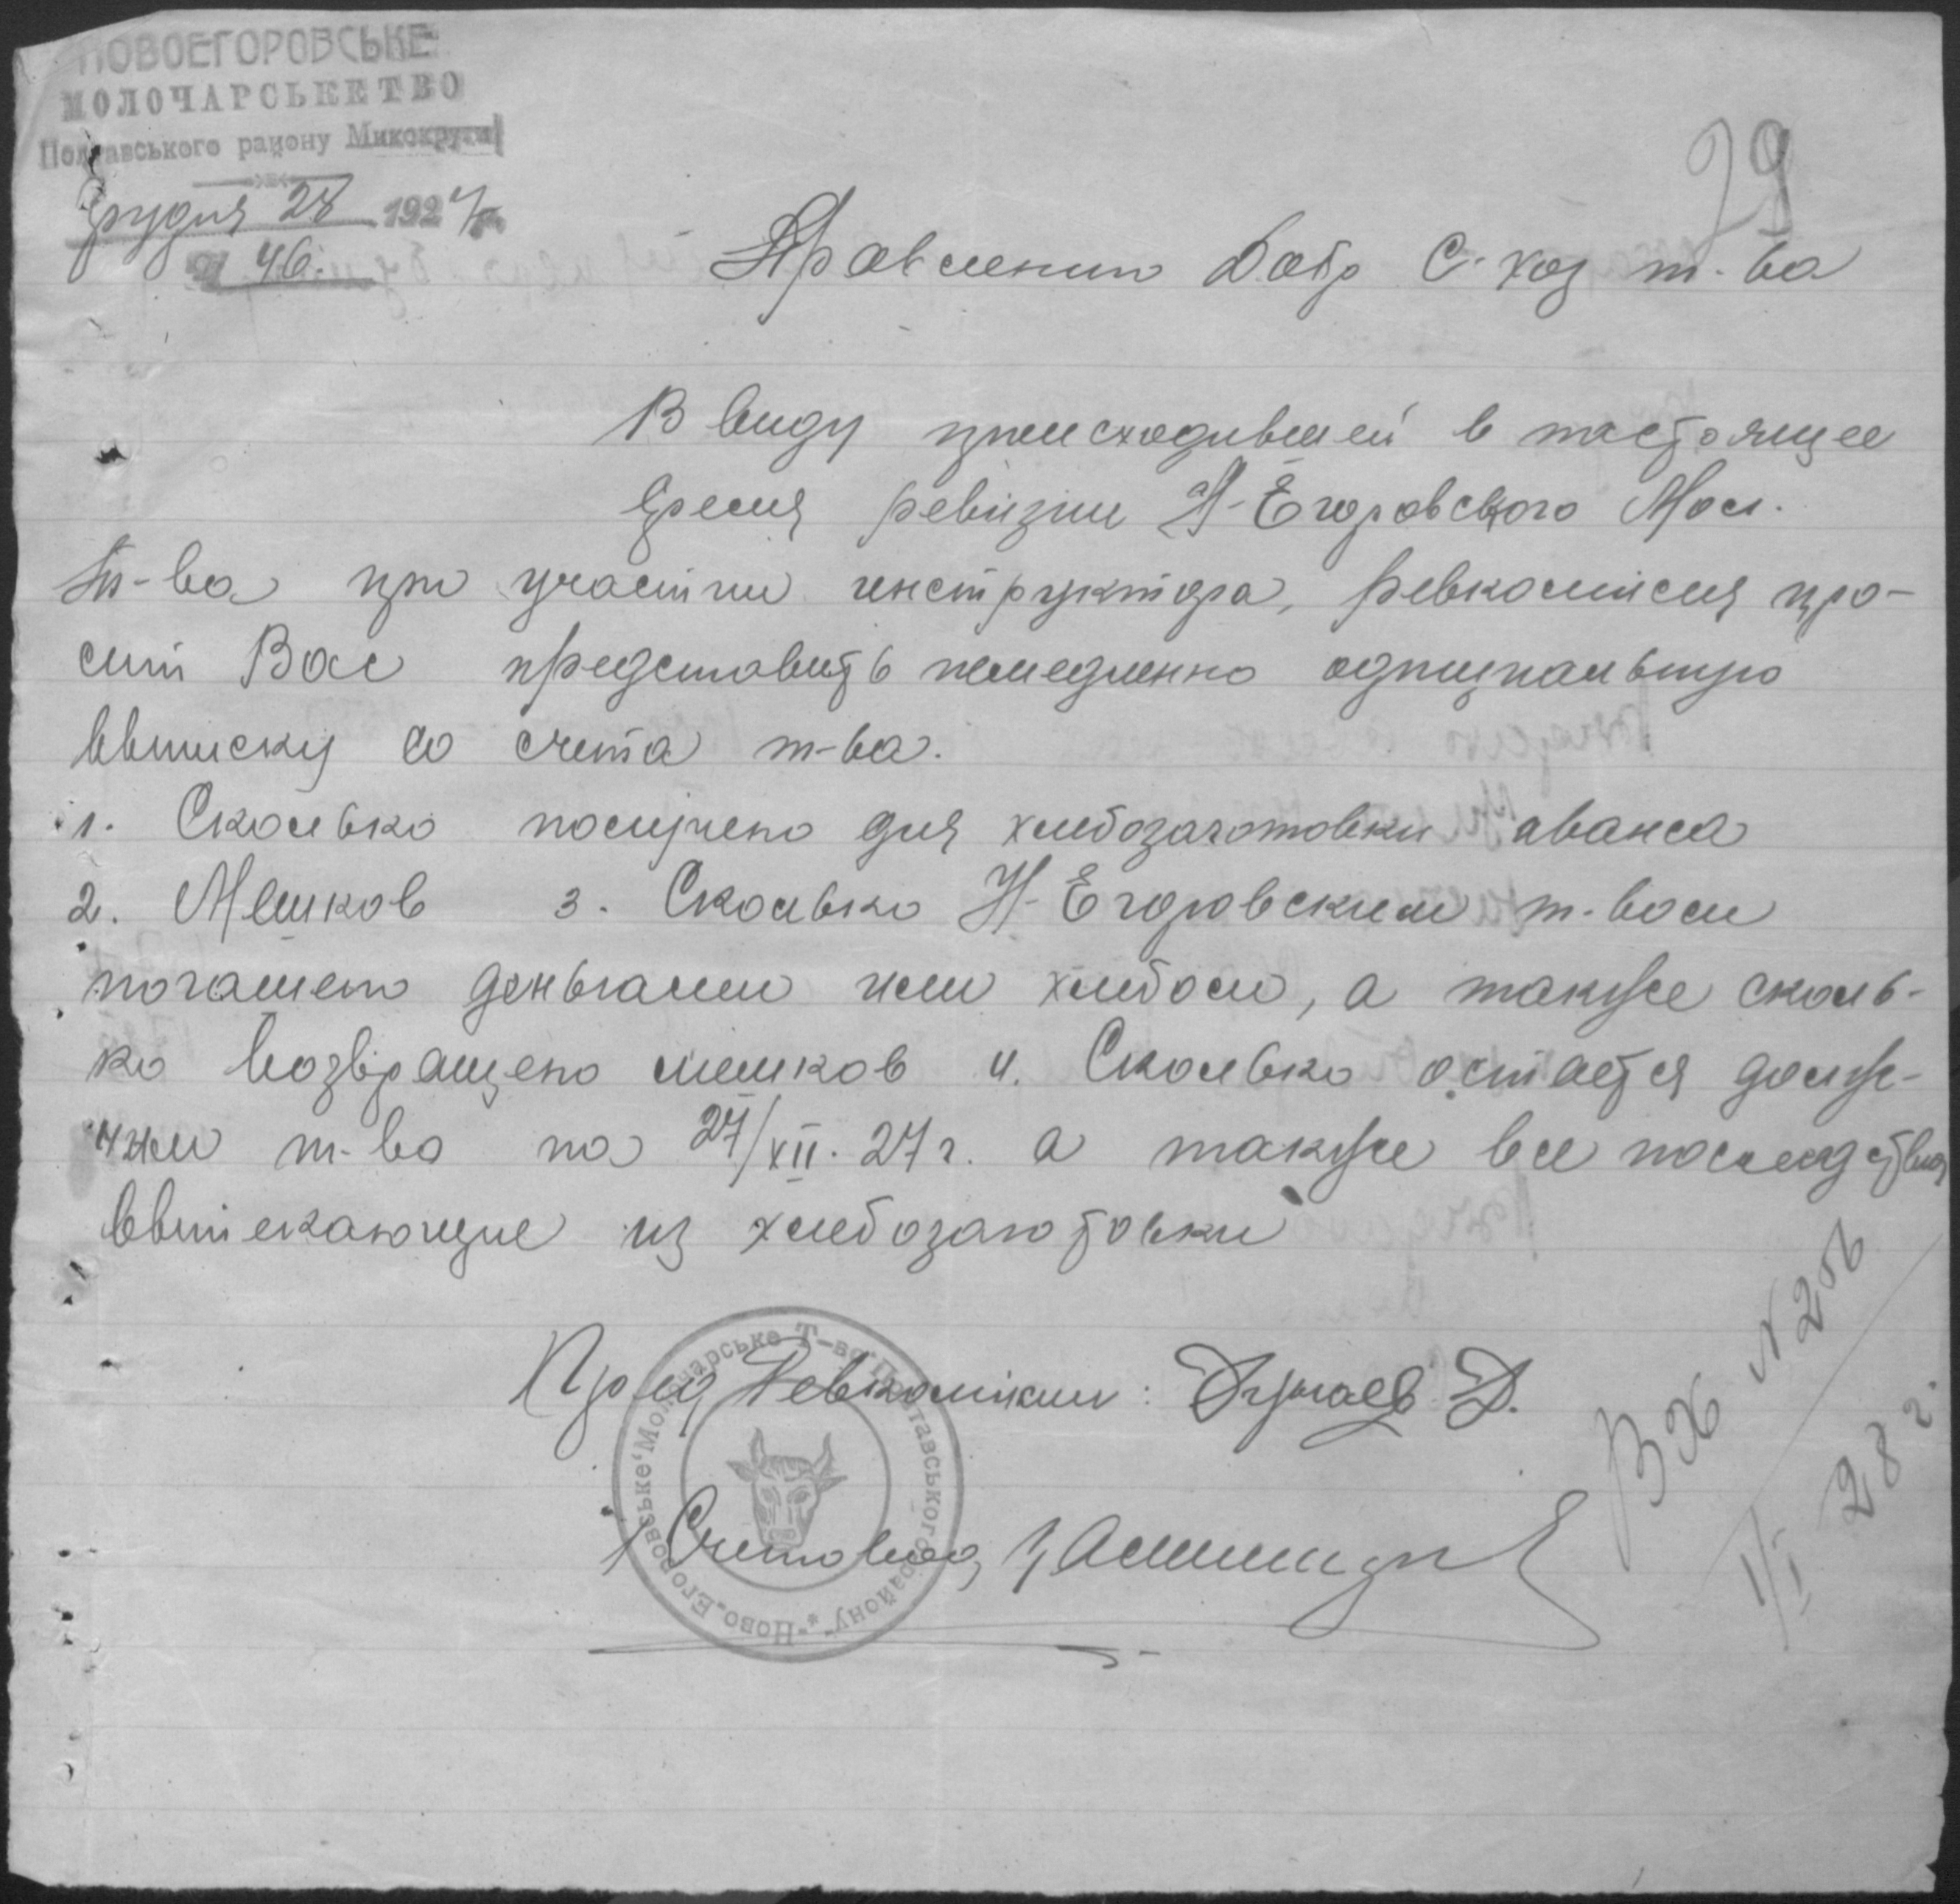 НОВОЕГОРОВСЬКЕ
МОЛОЧАРСЬКЕ ТВО
Полтавського району Микокруги
Грудня 28 1927 р.
№ 46.
79
Правлению Добр С. хоз т-ва
В виду происходившей в настоящее
время ревизии Н-Егоровского Мол.
т-ва при участии инструктора, ревкомисия про-
сит Вас представить немедленно
выписку со счета т-ва.
1. Сколько получено для хлебозаготовки аванса
2. Мешков 3. Сколько Н-Егоровским т-вом
погашено деньгами или хлебом, а также сколь-
ко возвращено мешков 4. Сколько остается долж-
ным т-во на 27/XII. 27 г. а также все последствия
вытекающие из хлебозаготовки
Пред Ревкомисии: Д.
Счетовод
Вх N 206
1/I 28 г.
Ново-Егоровське Молочарське Т-во Полтавського району